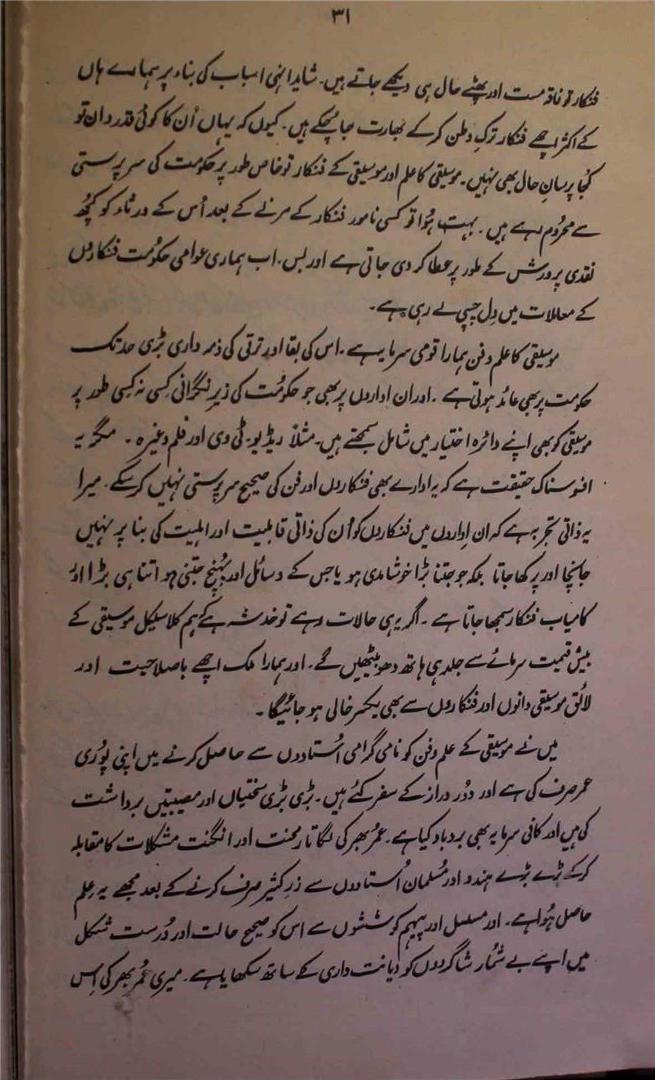 ۳۱
فنکار تو فاقہ مست اور پھٹے حال ہی دیکھے جاتے ہیں۔ شاید انہی اسباب کی بناء پر ہمارے ہاں
کے اکثر اچھے فنکار ترکِ وطن کر کے بھارت جا چکے ہیں۔ کیوں کہ یہاں اُن کا کوئی قدردان تو
کُجا پرسانِ حال بھی نہیں۔ موسیقی کا علم اور موسیقی کے فنکار تو خاص طور پر حکومت کی سرپرستی
سے محرُوم رہے ہیں۔ بہت ہُوا تو کسی نامور فنکار کے مرنے کے بعد اُس کے ورثاء کو کُچھ
نقدی پرورش کے طور پر عطا کر دی جاتی ہے اور بس۔ اب ہماری عوامی حکوُمت فنکاروں
کے معاملات میں دِل چسپی لے رہی ہے۔
موسیقی کا علم و فن ہمارا قومی سرمایہ ہے۔ اس کی بقا اور ترقی کی ذمہ داری بڑی حد تک
حکومت پر بھی عائد ہوتی ہے۔ اور ان اداروں پر بھی جو حکوُمت کی زیرِ نگرانی کِسی نہ کِسی طور پر
موسیقی کو بھی اپنے دائرہ اختیار میں شامل سمجھتے ہیں۔ مثلاً ریڈیو۔ ٹی وی اور فلم وغیرہ۔ مگر یہ
افسوسناک حقیقت ہے کہ یہ ادارے بھی فنکاروں اور فن کی صحیح سرپرستی نہیں کر سکے۔ میرا
یہ ذاتی تجربہ ہے کہ ان اِداروں میں فنکاروں کو اُن کی ذاتی قابلیت اور اہلیت کی بنا پر نہیں
جانچا اور پرکھا جاتا بلکہ جو جتنا بڑا خوشامدی ہو یا جس کے وسائل اور پہُنچ جتنی ہو اتنا ہی بڑا اور
کامیاب فنکار سمجھا جاتا ہے۔ اگر یہی حالات رہے تو خدشہ ہے کہ ہم کلاسیکل موسیقی کے
بیش قیمت سرمائے سے جلد ہی ہاتھ دھو بیٹھیں گے۔ اور ہمارا ملک اچھے باصلاحیت اور
لائق موسیقی دانوں اور فنکاروں سے بھی یکسر خالی ہو جائیگا۔
میں نے موسیقی کے علم و فن کو نامی گرامی اُستادوں سے حاصل کرنے میں اپنی پُوری
عمر صرف کی ہے اور دُور دراز کے سفر کئے ہیں۔ بڑی بڑی سختیاں اور مصیبتیں برداشت
کی ہیں اور کافی سرمایہ بھی برباد کیا ہے۔ عمر بھر کی لگاتار محنت اور انگنت مشکلات کا مقابلہ
کر کے بڑے بڑے ہندو اور مُسلمان اُستادوں سے زرِ کثیر صرف کرنے کے بعد مجھے یہ عِلم
حاصل ہُوا ہے۔ اور مسلسل اور پیہم کوششوں سے اس کو صحیح حالت اور دُرست شکل
میں اپنے بے شُمار شاگردوں کو دیانت داری کے ساتھ سکھایا ہے۔ میری عُمر بھر کی اِس